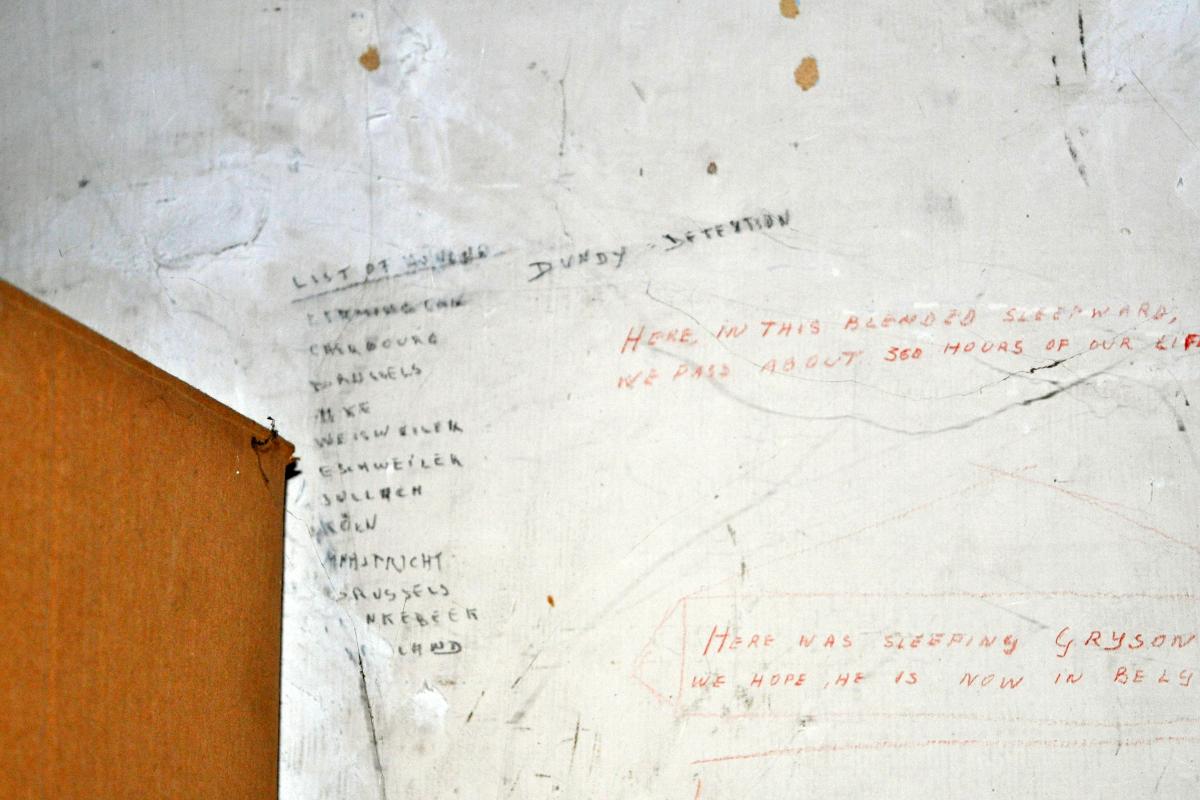 LIST OF HONOUR
DUNDY - DETENTION
CHERBOURG
BRUSSELS
WEISWEILER
ESCHWEILER
JULLICH
KÖLN
MAASTRICHT
BRUSSELS
NKEBEEK
LAND
HERE, IN THIS BLENDED SLEEPWARD,
WE PASD ABOUT 360 HOURS OF OUR LIFE
HERE WAS SLEEPING GRYSON
WE HOPE, HE IS NOW IN BELG